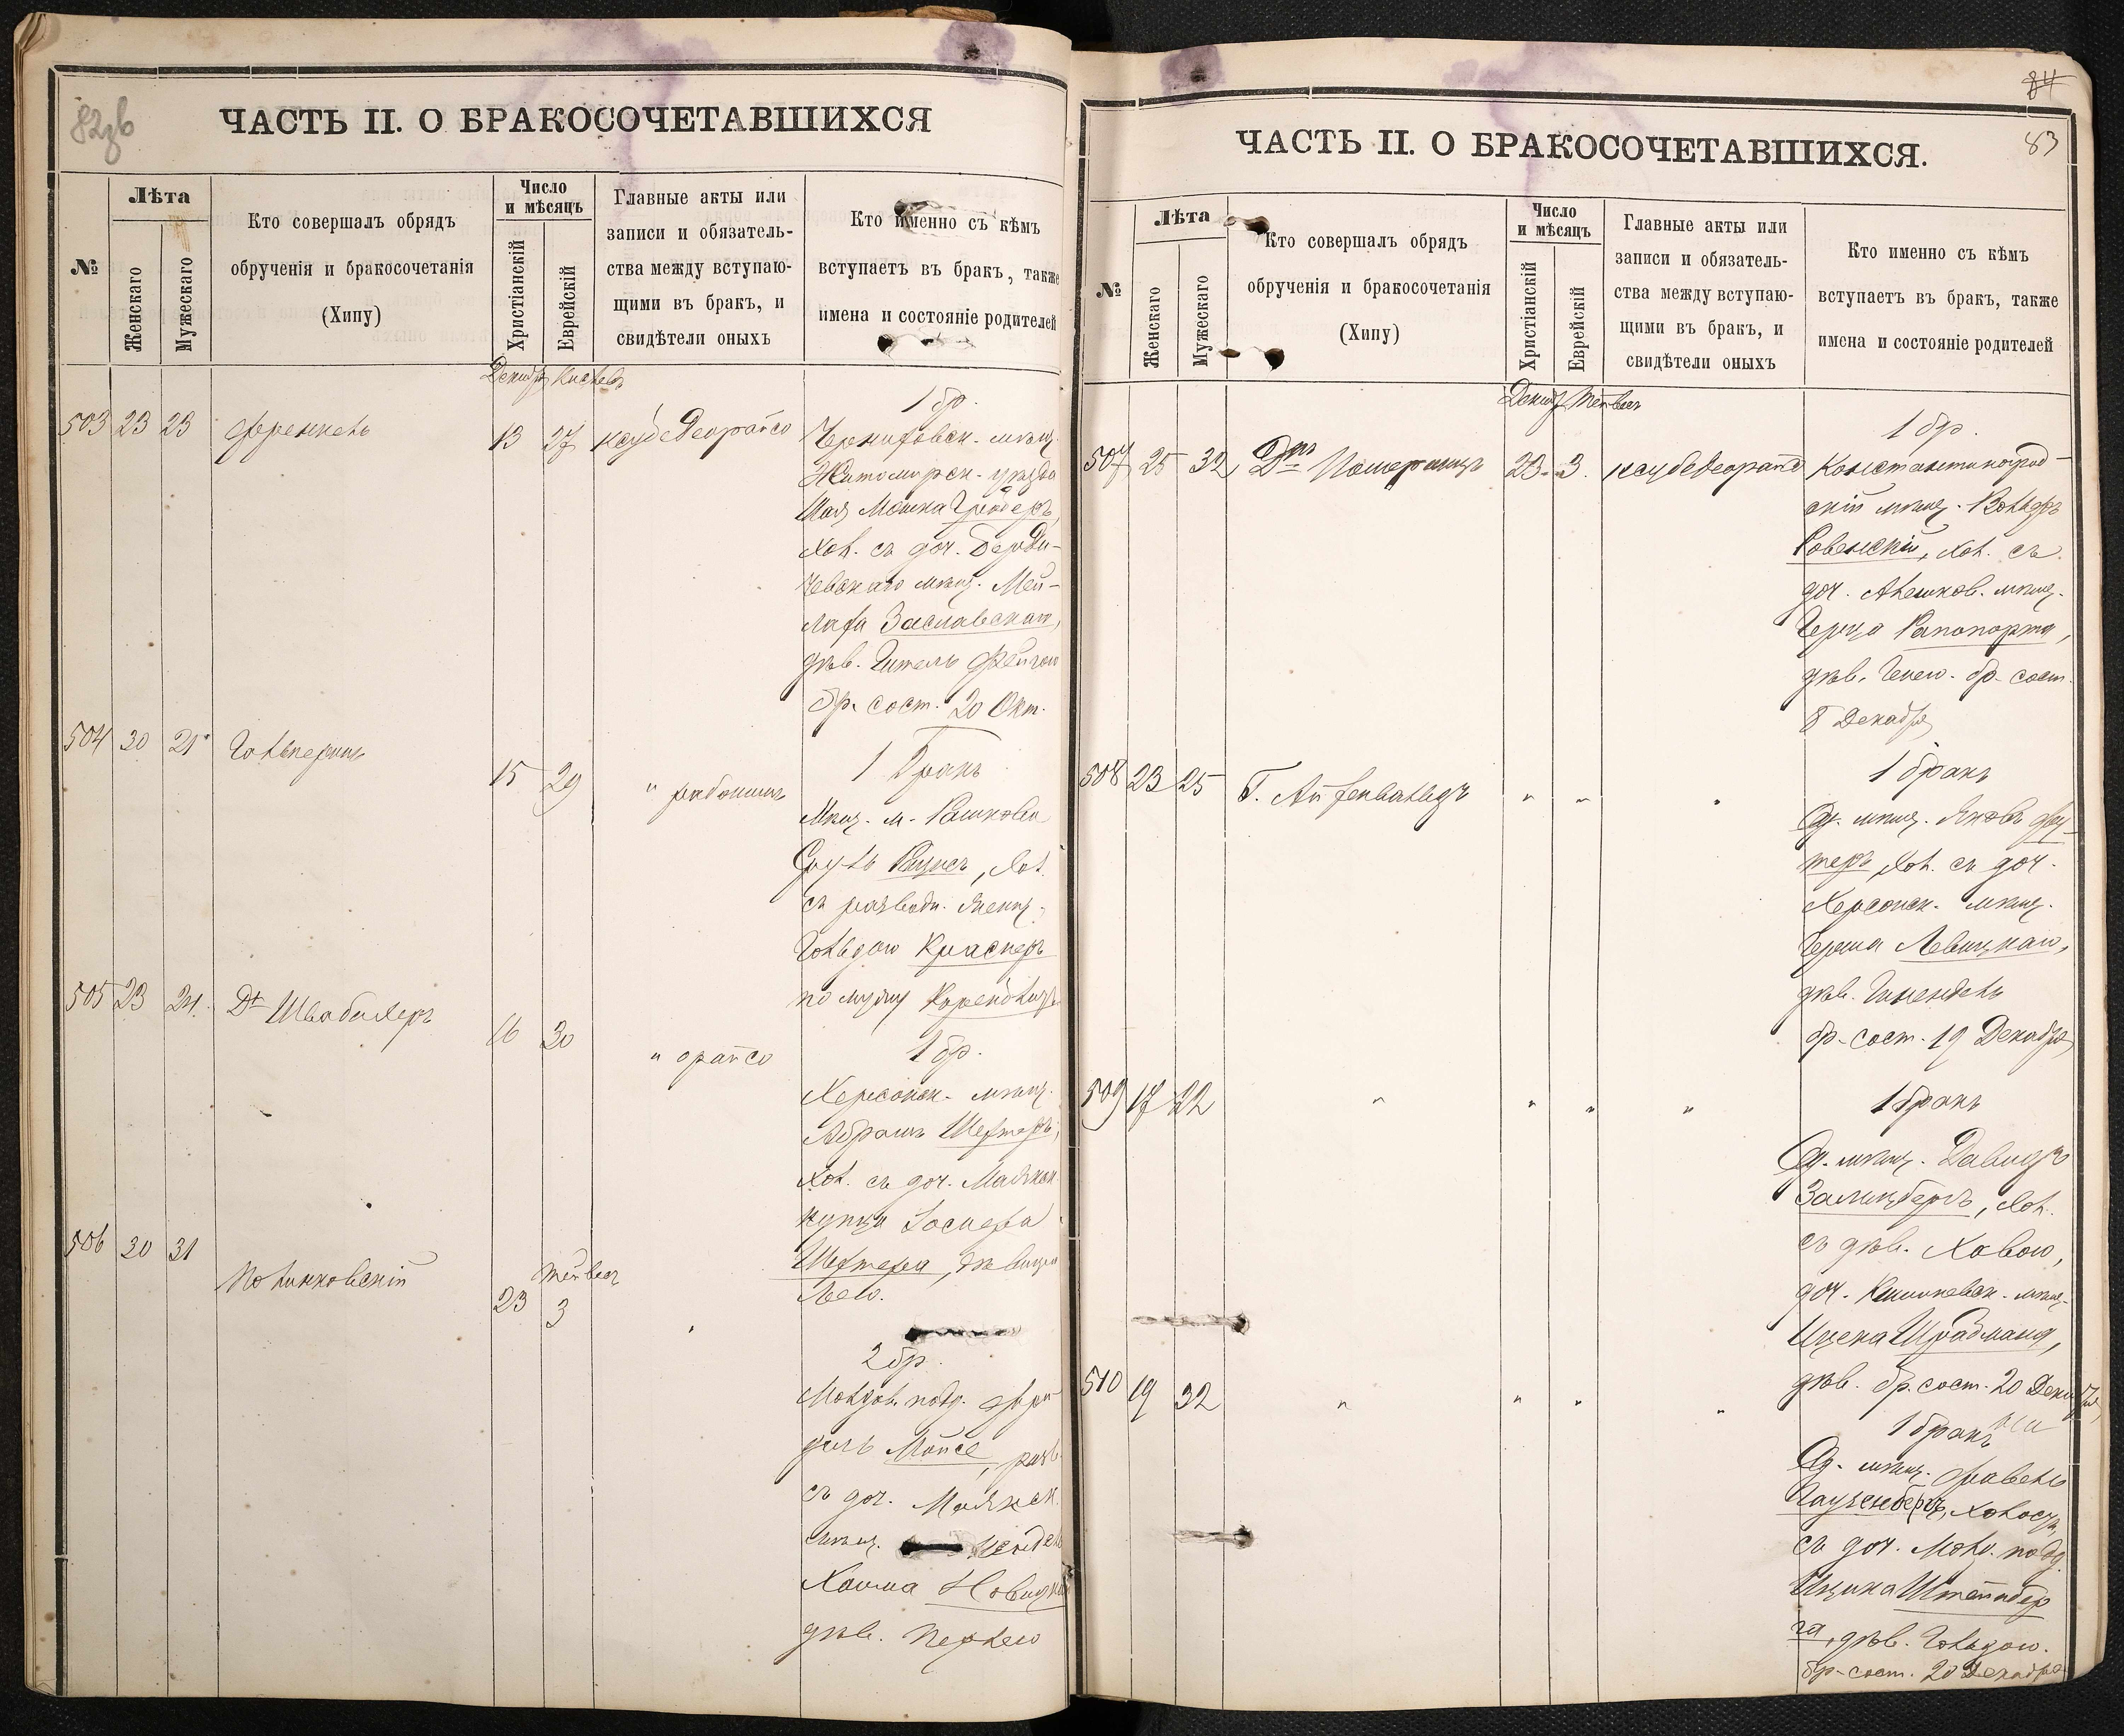 82зв
ЧАСТЬ II. О БРАКОСОЧЕТАВШИХСЯ
№
Лѣта
Женскаго
Мужескаго
Кто совершалъ обрядъ
обрученія и бракосочетанія
(Хипу)
Число
и мѣсяцъ
Христіанскій
Еврейскій
Главные акты или
записи и обязатель-
ства между вступаю-
щими въ бракъ, и
свидѣтели оныхъ
Кто именно съ кѣмъ
вступаетъ въ бракъ, также
имена и состояніе родителей
Декабр Кислевъ
503 23 23 Френкель 13 27
1 бр.
Черниховск. мѣщ.
Житомирск. уѣзда
Мошка
Хол. съ доч. Берди-
чевскаго мѣщ. Мей-
лаха Заславскаго,
дѣв. Гитель Фейгою
бр. сост. 20 Окт.
504 30 21 Гальперинъ 15 29
1 Бракъ
Мѣщ. м. Рашкова
Сруль, Хол.
съ разводн. женщ.
Гольдою Краснеръ
по мужу
505 23 24 Дъ Швабахеръ 16 30
1 бр.
Херсонск. мѣщ.
Абрамъ Шехтеръ,
Хол. съ доч. Маякск.
купца
Шехтера, дѣвицею
Леею.
506 30 31 Полинковскій 23 Тейвесъ 3
2 бр.
Молдав. подд.
Мойсе, разв.
съ доч. Маякск.
мѣщ.
Хаима
дѣв. Перлею
84
83
ЧАСТЬ II. О БРАКОСОЧЕТАВШИХСЯ.
№
Лѣта
Женскаго
Мужескаго
Кто совершалъ обрядъ
обрученія и бракосочетанія
(Хипу)
Число
и мѣсяцъ
Христіанскій
Еврейскій
Главные акты или
записи и обязатель-
ства между вступаю-
щими въ бракъ, и
свидѣтели оныхъ
Кто именно съ кѣмъ
вступаетъ въ бракъ, также
имена и состояніе родителей
Декабр Тейвесъ
507 25 32 Дръ Померанцъ 23 3.
1 бр.
Константиноград-
скій мѣщ. Вольфъ
Ровенскій, Хол. съ
доч. Алешков. мѣщ.
Герца Рапопорта,
дѣв. Генею. бр. сост.
8 Декабря
508 23 25 Г. Айзенвальдъ " " "
1 бракъ
Од. мѣщ. Яковъ
Хол. съ доч.
Херсонск. мѣщ.
Герша Левицкаго,
дѣв. Гинендель
бр. сост. 19 Декабря
509 17 22 " " " "
1 бракъ
Од. мѣщ. Давидъ
Залицбергъ, Хол.
съ дѣв. Хавою,
доч. Кишиневск. мѣщ.
Ицека
дѣв. бр. сост. 20 Декабря
510 19 32 " " " "
1 бракъ
Од. мѣщ.
Гаузенбергъ, Холостъ,
съ доч. Молд. подд.
Ицика Штейнбер
га, дѣв. Гольдою.
бр. сост. 20 Декабря